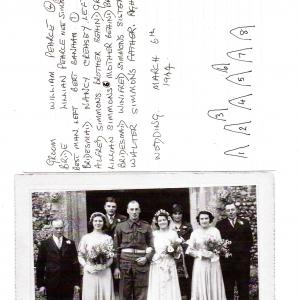 GROOM WILLIAM PEARCE ④
BRIDE LILLIAN PEARCE NEE SIMM
BEST MAN LEFT BERT BANHAM ①
BRIDESMAID NANCY CREASEY LEFT
ALFRED SIMMONS BROTHER BEHIND GR
LILLIAN SIMMONS MOTHER BEHIND BR
BRIDESMAID WINIFRED SIMMONS SISTER
WALTER SIMMONS FATHER. RGH
WEDDING. MARCH 6TH
1944
1 2 3 4 5 6 7 8